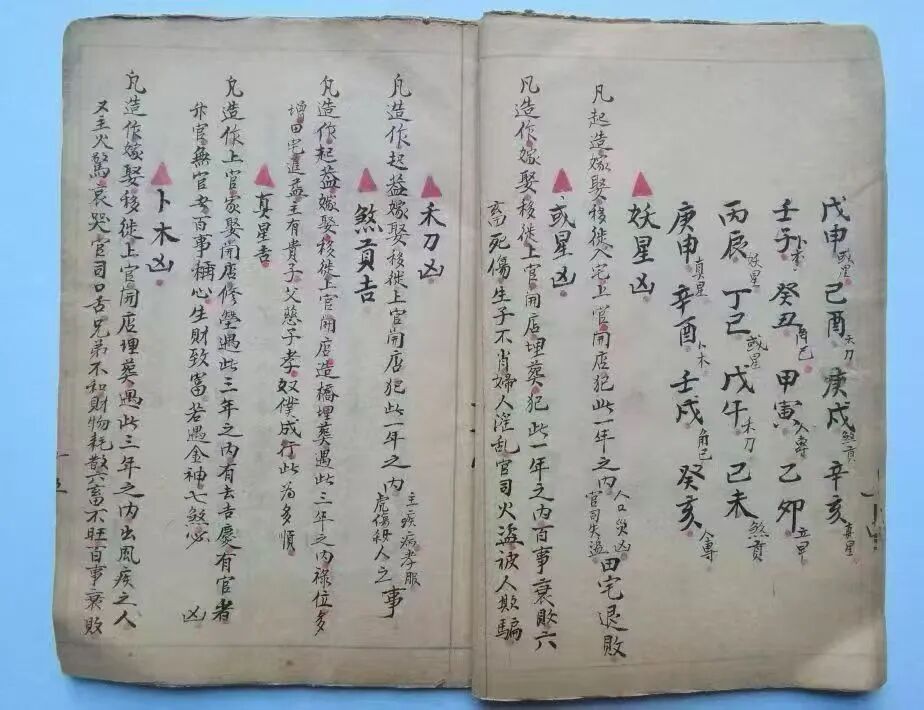 戊申 或星 己酉 禾刀 庚戌 煞貢 辛亥 真星
壬子 卜木 癸丑 角己 甲寅 人專 乙卯 立早
丙辰 妖星 丁巳 或星 戊午 禾刀 己未 煞貢
庚申 真星 辛酉 卜木 壬戌 角己 癸亥 人專
妖星凶
凡起造嫁娶移徙入宅上官開店犯此一年之內 人口災凶 官司失盜 田宅退敗
或星凶
凡造作嫁娶移徙上官開店埋葬犯此一年之內百事衰敗六
畜死傷生子不肖婦人淫乱官司火盜被人欺騙
禾刀凶
凡造作起盖嫁娶移徙上官開店犯此一年之內 主疾病孝服 虎傷殺人之 事
煞貢吉
凡造作起盖嫁娶移徙上官開店造橋埋葬遇此三年之內祿位多
增田宅進益主有貴子父慈子孝奴僕成行此為多順
真星吉
凡造作上官家娶開店修塋遇此三年之內有去吉慶有官者
升官無官者百事稱心生財致富若遇金神七煞必 凶
卜木凶
凡造作嫁娶移徙上官開店埋葬遇此三年之內出風疾之人
又主火驚哀哭官司口舌兄弟不和財物耗散六畜不旺百事衰敗